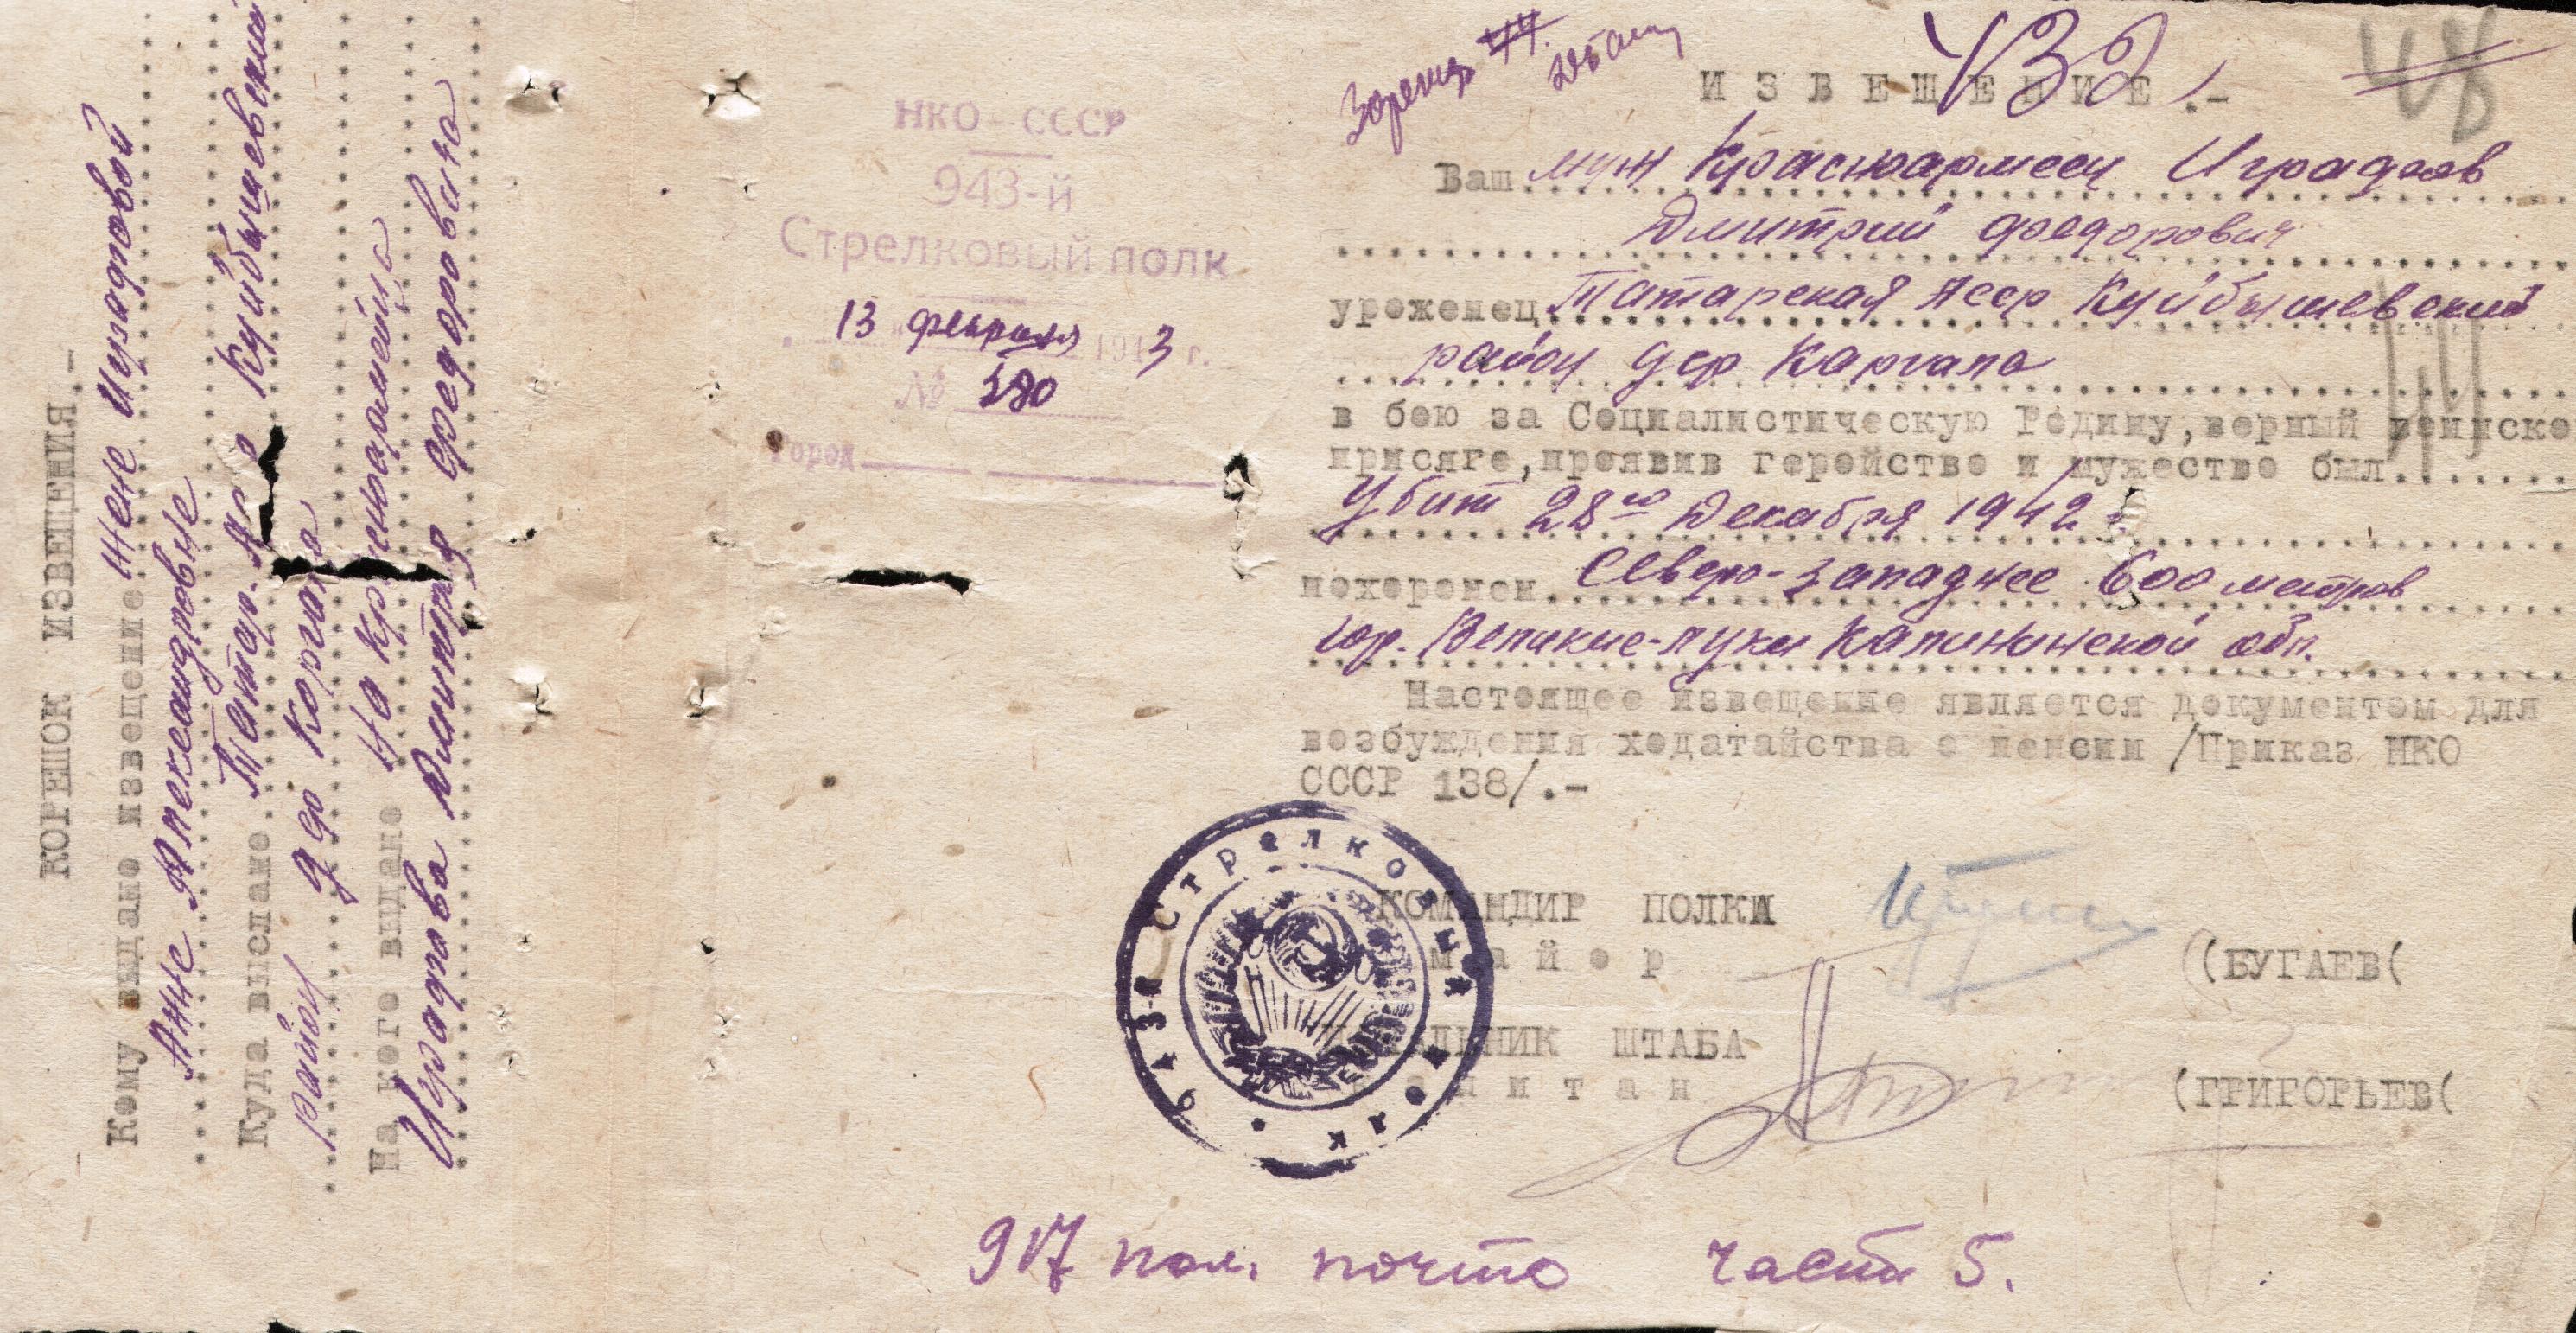 КОРЕШОК ИЗВЕЩЕНИЯ.-
Кому выдано извещение Жене Иградовой
Анне Александровне
Куда выслано Татар. Куйбышевский
район д Каргопа
На кого выдано На Красноармейца
Иградова Дмитрия Федоровича
НКО - СССР
943-й
Стрелковый полк
"13" февраля 1943 г.
№ 280
Город
48
ИЗВЕЩЕНИЕ.-
Ваш муж Красноармеец Иградов
Дмитрий Федорович
уроженец Татарская Асср Куйбышевский
район дер Каргапа
в бою за Социалистическую Родину, верный воинско
присяге, проявив геройство и мужество был
Убит 28го Декабря 1942 г
похоронен Северо-западнее 600 метров
гор. Великие-луки Калининской обл.
Настоящее извещение является документом для
возбуждения ходатайства о пенсии /Приказ НКО
СССР 138/.-
КОМАНДИР ПОЛКА
майор (БУГАЕВ(
НАЧАЛЬНИК ШТАБА
капитан (ГРИГОРЬЕВ(
943-й СТРЕЛКОВЫЙ ПОЛК
917 пол. почта часть 5.